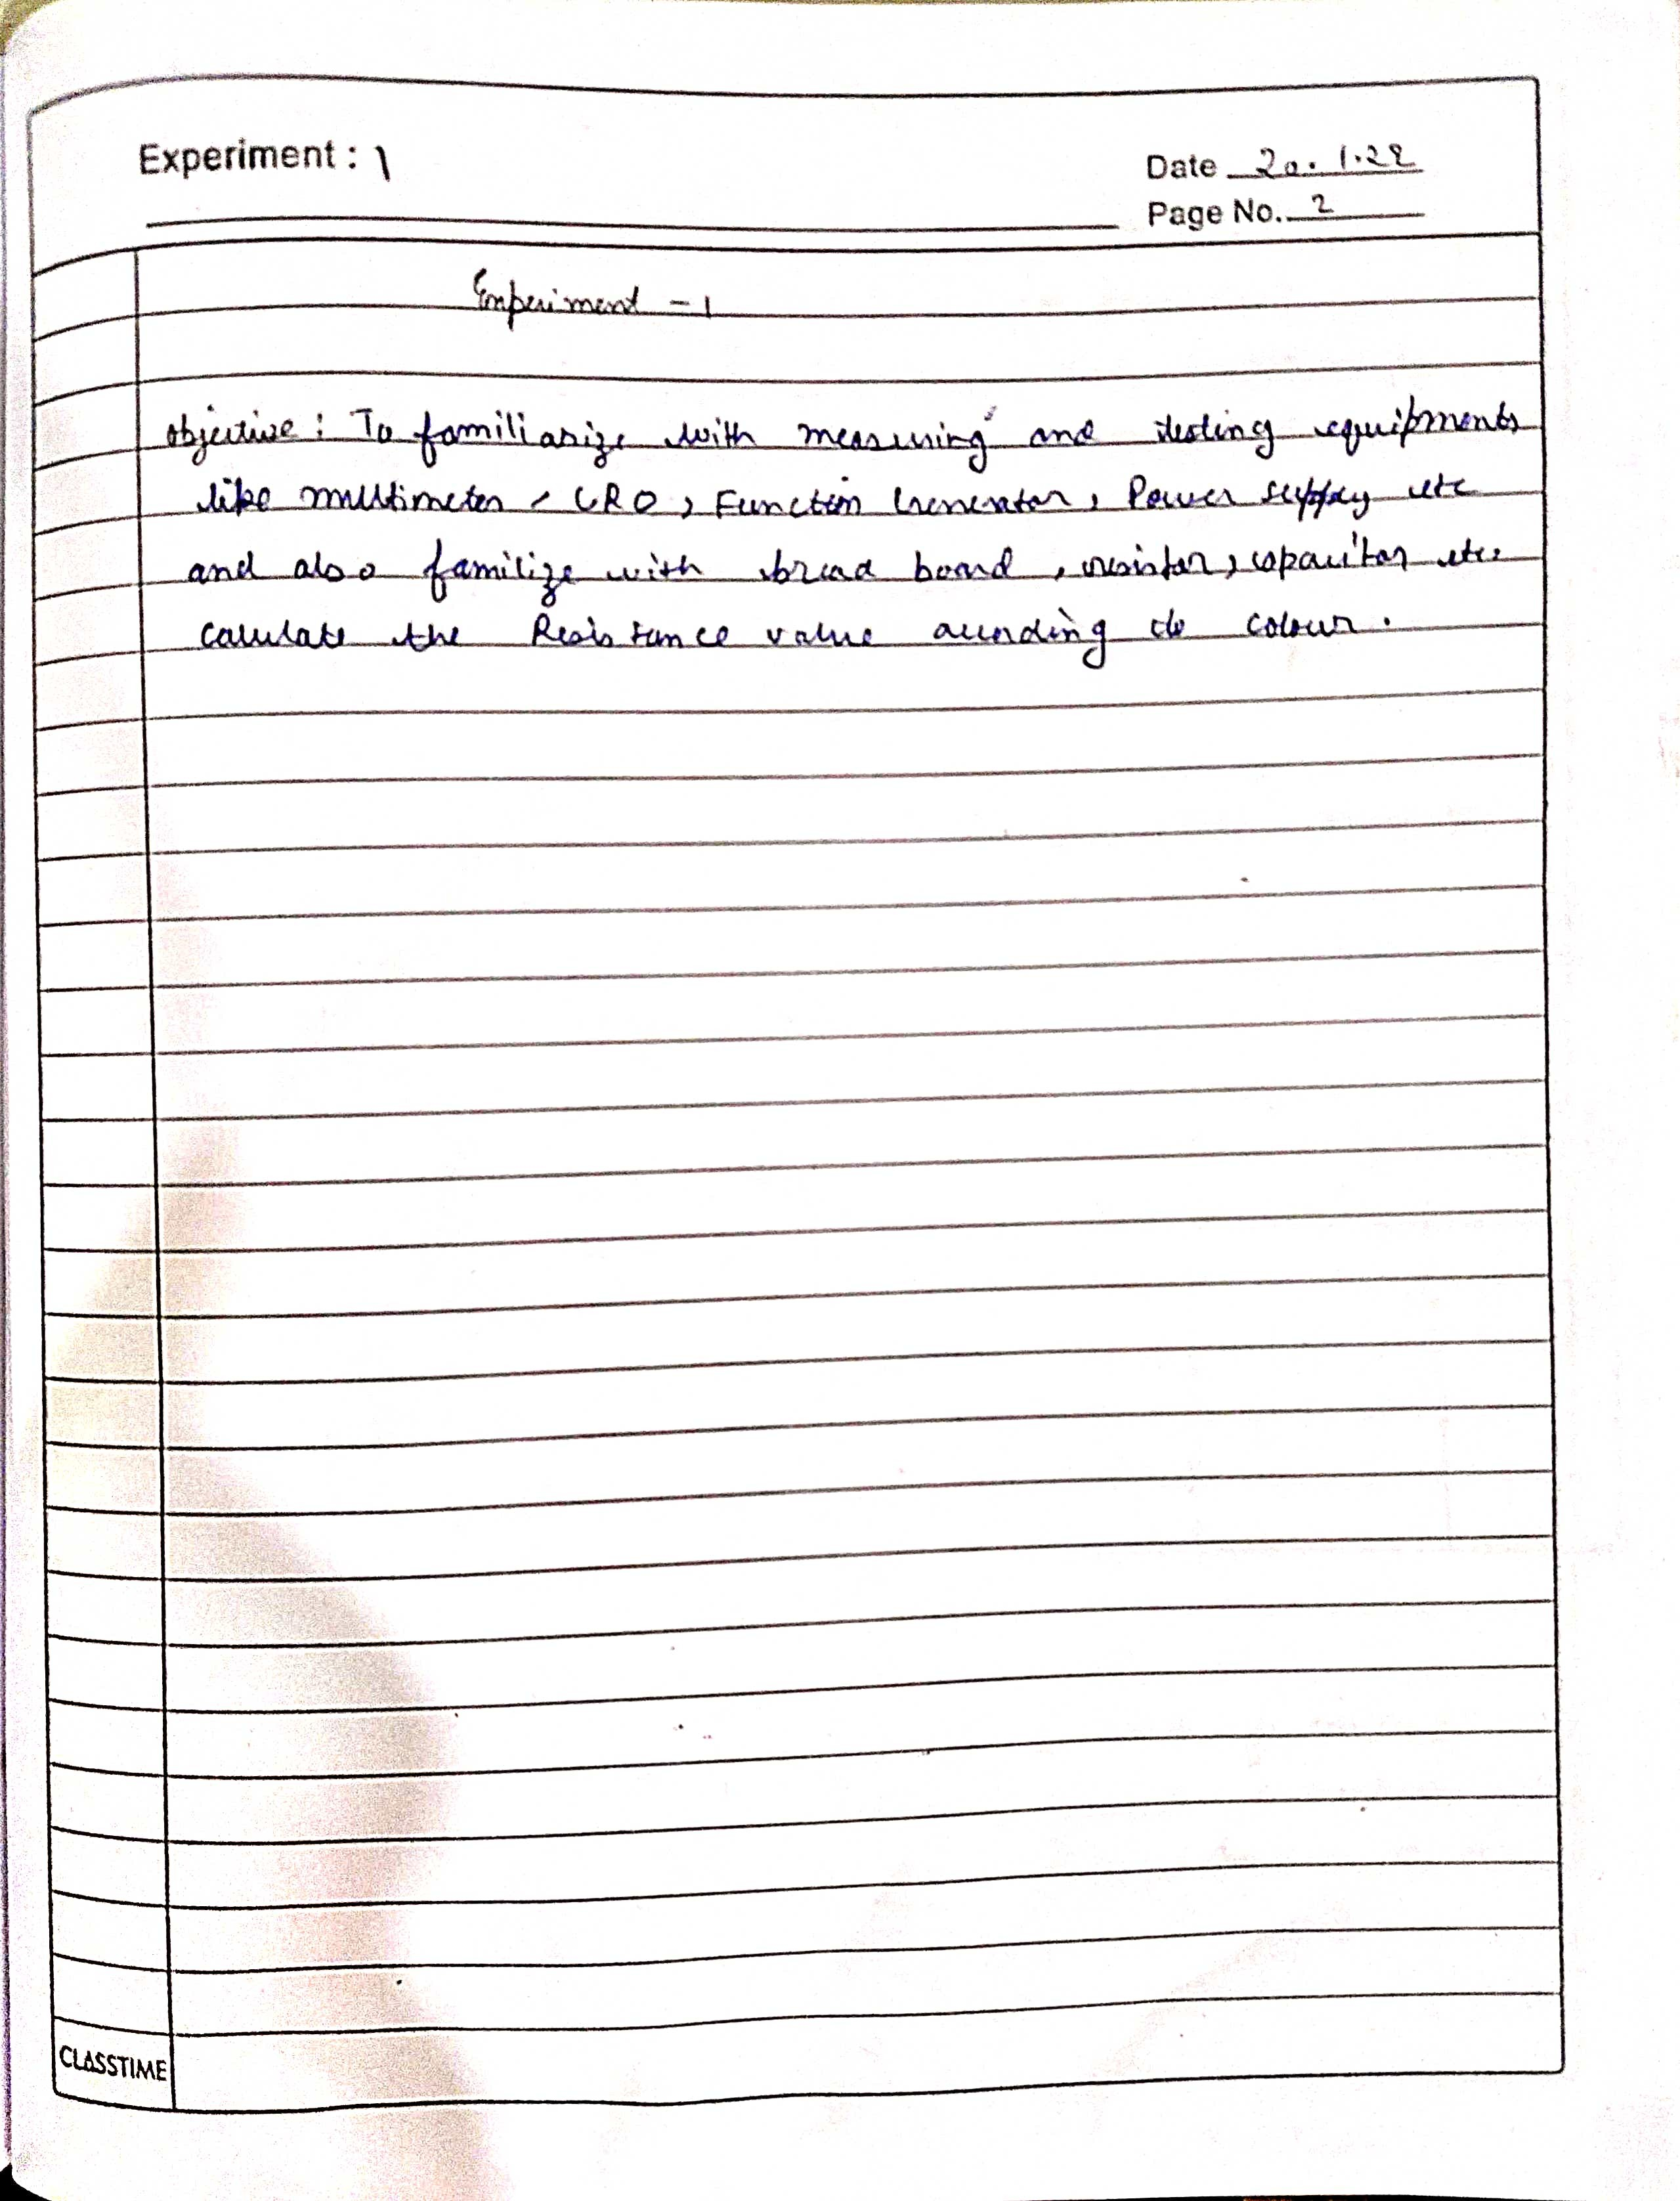 Experiment : 1
Date 20.1.22
Page No. 2
Experiment - 1
objective : To familiarize with measuring and testing equipments
like multimeter, CRO, Function Generator, Power supply etc
and also familize with bread board, resistor, capacitor etc.
calculate the Resistance value according to colour.
CLASSTIME